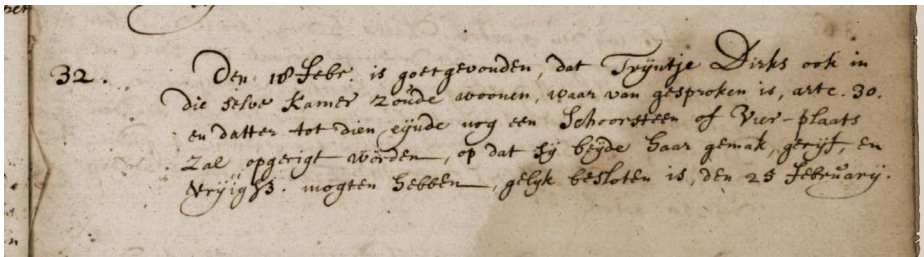 32. Den 18 Febr. is goetgevonden, dat Trijntje Dirks ook in
die selve Kamer zoude woonen, waar van gesproken is, artc. 30.
en datter tot dien eijnde nog een Schoorsteen of Vier-plaats
zal opgerigt worden, op dat sij beijde haar gemak, gerijf, en
mogten hebben, gelijk besloten is, den 25 February.